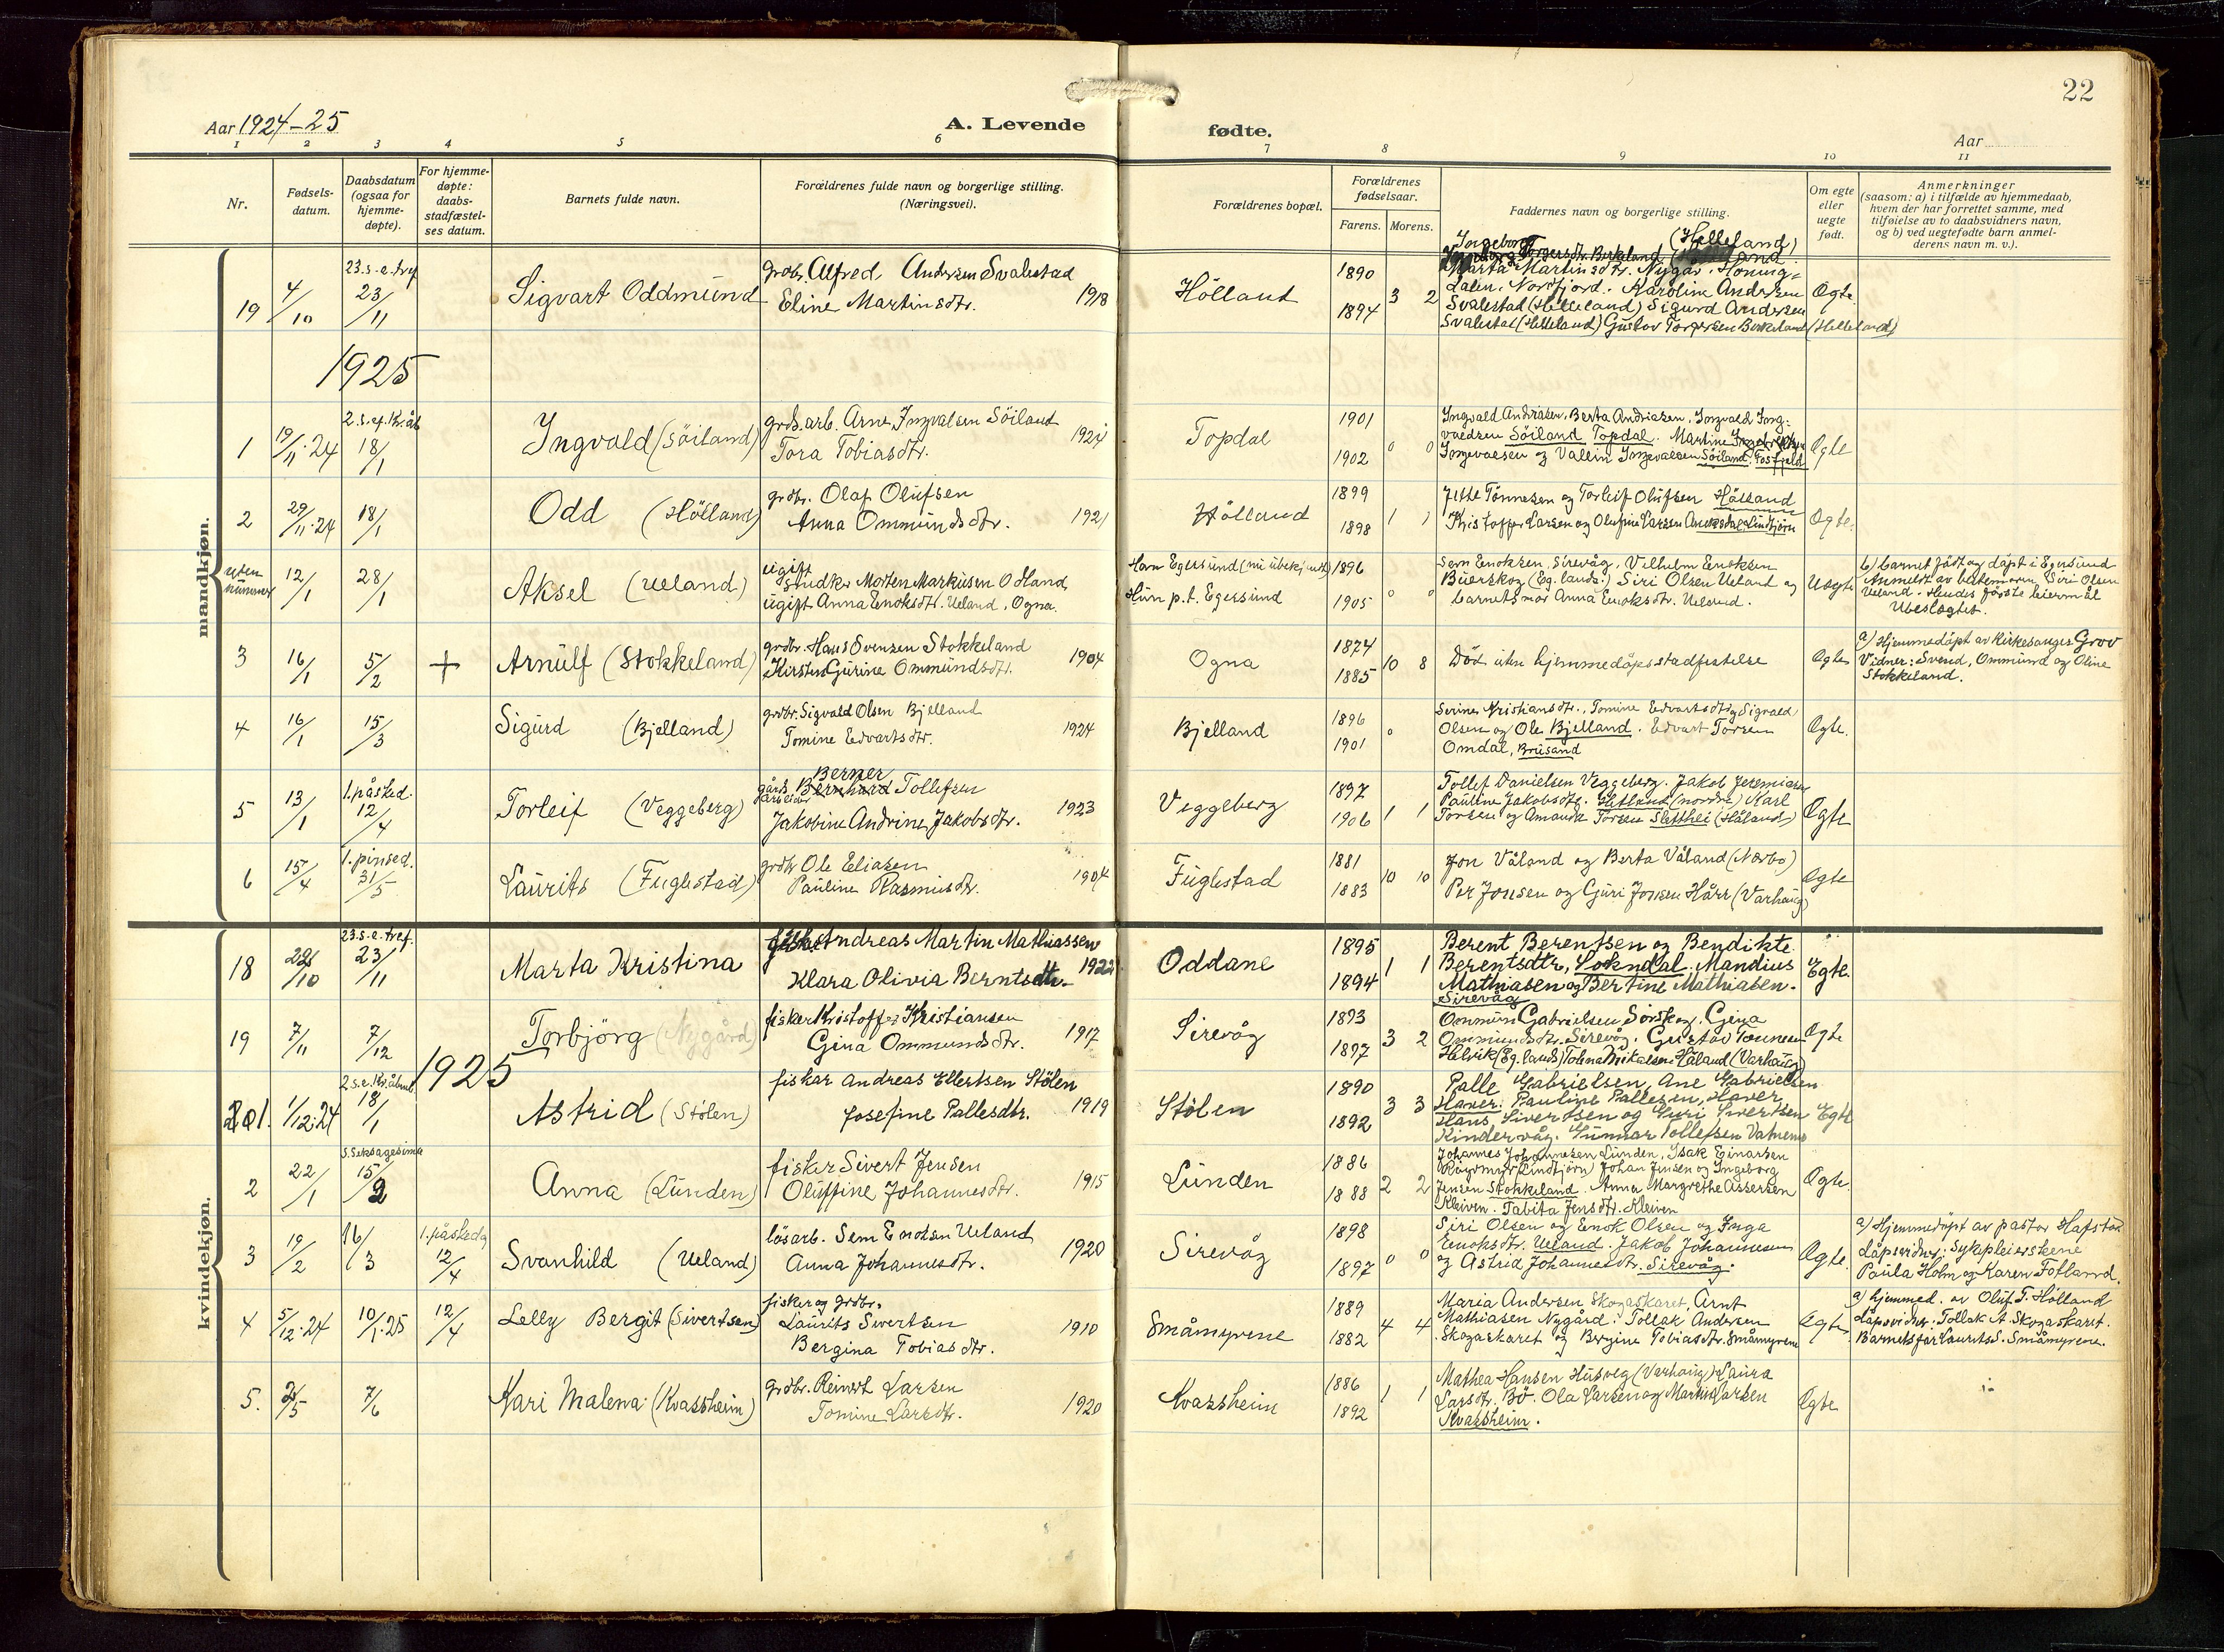 22
Aar 1924-25
A. Levende fødte.
Aar
1 2 3 4 5 6 7 8 9 10 11
Nr.
Fødsels-
datum.
Daabsdatum
(ogsaa for
hjemme-
døpte).
For hjemme-
døpte:
daabs-
stadfæstel-
ses datum.
Barnets fulde navn.
Forældrenes fulde navn og borgerlige stilling.
(Næringsvei).
Forældrenes bopæl.
Forældrenes
fødselsaar.
Farens. Morens.
Faddernes navn og borgerlige stilling.
Om egte
eller
uegte
født.
Anmerkninger
(saasom: a) i tilfælde av hjemmedaab,
hvem der har forrettet samme, med
tilføielse av to daabsvidners navn,
og b) ved uegtefødte barn anmel-
derens navn m. v.).
mandkjøn.
19 4/10 23.s.e.tref 23/11 Sigvart Oddmund
grdbr. Alfred Andersen Svalestad
Eline Martinsdtr. 1918
Hölland 1890 1894 3 2
Ingeborg Torgersdtr. Birkeland (Helleland)
Marta Martinsdtr. Nygår, Höning-
dalen, Nordfjord. Karoline Andersen
Svalestad (Helleland) Sigurd Andersen
Svalestad (Helleland) Gustav Torgersen Birkeland (Helleland)
Ægte
1925
1 19/11.24 2.s.ef.Kr.åb 18/1 Ingvald (Söiland)
grds.arb. Arne Ingvalsen Söiland
Tora Tobiasdtr. 1924
Topdal 1901 1902 0 0
Ingvald Andriasen, Berta Andriasen, Ingvald Ing-
valdsen Söiland Topdal. Martine
Ingvalsen og Vallin Ingevalsen Söiland, Fosfjeld
Ægte
2 29/11.24 18/1 Odd (Hölland)
grdbr. Olaf Olufsen
Anna Ommundsdtr. 1921
Hölland 1899 1898 1 1
Jille Tönnesen og Torleif Olufsen Hölland
Kristoffer Larsen og Olufine Larsen Aneksdal Lindtjörn
Ægte.
uten nummer 12/1 28/1 Aksel (Ueland)
ugift
Studkr Morten Markusen O Hand
ugift Anna Enoksdtr. Ueland, Ogna.
Han Egersund (nu ubekjendt)
Hun p.t. Egersund
1896 1905 0 0
Sem Enoksen, Sirevåg, Vilhelm Enoksen
Buerskog (Eg. lands:) Siri Olsen Ueland og
barnets mor Anna Enoksdtr. Ueland.
Uægte
b) barnet født og døpt i Egersund
Anmeldt av bestemoren, Siri Olsen
Ueland. Hendes første leiermål
Ubeslægtet.
3 16/1 5/2 + Arnulf (Stokkeland)
grdbr. Hans Svensen Stokkeland
Kirsten Gurine Ommundsdtr. 1904
Ogna 1874 1885 10 8
Död uten hjemmedåpsstadfestelse
Ægte
a) Hjemmedöpt av Kirkesanger Grov
Vidner: Svend, Ommund og Oline
Stokkeland.
4 16/1 15/3 Sigurd (Bjelland)
grdbr. Sigvald Olsen Bjelland
Tomine Edvartsdtr. 1924
Bjelland 1896 1901 0
Serine Kristiansdtr., Tomine Edvartsdtr og Sigvald
Olsen og Ole Bjelland. Edvart Torsen
Omdal, Brusand
Ægte.
5 13/1 1.påsked. 12/4 Torleif (Veggeberg)
Berner
gårdsarbeider Bernhard Tollefsen
Jakobine Andrine Jakobsdtr. 1923
Veggeberg 1897 1906 1 1
Tollef Danielsen Veggeberg. Jakob Jeremiasen
Pauline Jakobsdtr. Hetland (nordre) Karl
Torsen og Amanda Torsen Sletthei (Håland)
Ægte
6 15/4 1.pinsed. 31/5 Laurits (Fuglestad)
grdbr Ole Eliasen
Pauline Rasmusdtr. 1904
Fuglestad 1881 1883 10 10
Jon Våland og Berta Våland (Nærbø)
Per Jonsen og Guri Jonsen Hårr (Varhaug)
Ægte
kvindekjøn.
18 22/10 23.s.e.tref. 23/11 Marta Kristina
fisker Andreas Martin Mathiassen
Klara Olivia Berntsdtr. 1922
Oddane 1895 1894 1 1
Berent Berentsen og Bendikte
Berentsdtr, Sokndal. Mandius
Mathiasen og Bertine Mathiasen.
Sirevåg
Egte.
19 7/11 7/12 Torbjörg (Nygård)
fisker Kristoffer Kristiansen
Gina Ommundsdtr. 1917
Sirevåg 1893 1897 3 2
Ommun Gabrielsen, Sörskog. Gina
Ommundsdtr. Sirevåg. Gustav Tönnesen
Helvik (Eg. lands) Tolena Mikalsen Håland (Varhaug)
Ægte
1925
1. 1/12.24 2.s.e.Kr.åbenb. 18/1 Astrid (Stölen)
fiskar Andreas Ellertsen Stölen
Josefine Pallesdtr. 1919
Stölen 1890 1892 3 3
Palle Gabrielsen, Ane Gabrielsen
Haver. Pauline Pallesen, Haver
Hans Sivertsen og Guri Sivertsen
Kindervåg. Gunnar Tollefsen Vatnemo
Egte
2 22/1 S.Seksagesima 15/2 Anna (Lunden)
fisker Sivert Jensen
Oluffine Johannesdtr. 1915
Lunden 1886 1888 2 2
Johannes Johannesen Lunden, Isak Einarsen
Röysmyr (Lindtjörn) Johan Jensen og Ingeborg
Jensen Stokkeland. Anna Margrethe Assersen
Kleiven. Tabita Jensdtr. Kleiven
Ægte.
3 19/2 16/3 1.påskedag 12/4 Svanhild (Ueland)
lösarb. Sem Enoksen Ueland
Anna Johannesdtr. 1920
Sirevåg 1898 1897 0 0
Siri Olsen og Enok Olsen og Inga
Enoksdtr. Ueland. Jakob Johannesen
og Astrid Johannesdtr. Sirevåg.
Ægte.
a) Hjemmedöpt av pastor Hafstad
Dåpsvidner: Sykepleierskene
Paula Holm og Karen Fotland.
4 5/12.24 10/1.25 12/4 Lelly Bergit (Sivertsen)
fisker og grdbr.
Laurits Sivertsen
Bergina Tobiasdtr. 1910
Småmyrene 1889 1882 4 4
Maria Andersen Skogaskaret, Arnt
Mathiasen Nygård. Tollak Andersen
Skogaskaret og Bergine Tobiasdtr. Småmyrene
Ægte
a) hjemmed. av Oluf T. Hölland
Dåpsvidner: Tollak A. Skogaskaret.
Barnets far Laurits S. Småmyrene.
5. 2/5 7/6 Kari Malena (Kvassheim)
grdbr. Reinert Larsen
Tomine Larsdtr. 1920
Kvassheim 1886 1892 1 1
Mathea Hansen Husveg (Varhaug) Laura
Larsdtr. Bö. Ola Larsen og Martin Larsen
Kvassheim.
Ægte